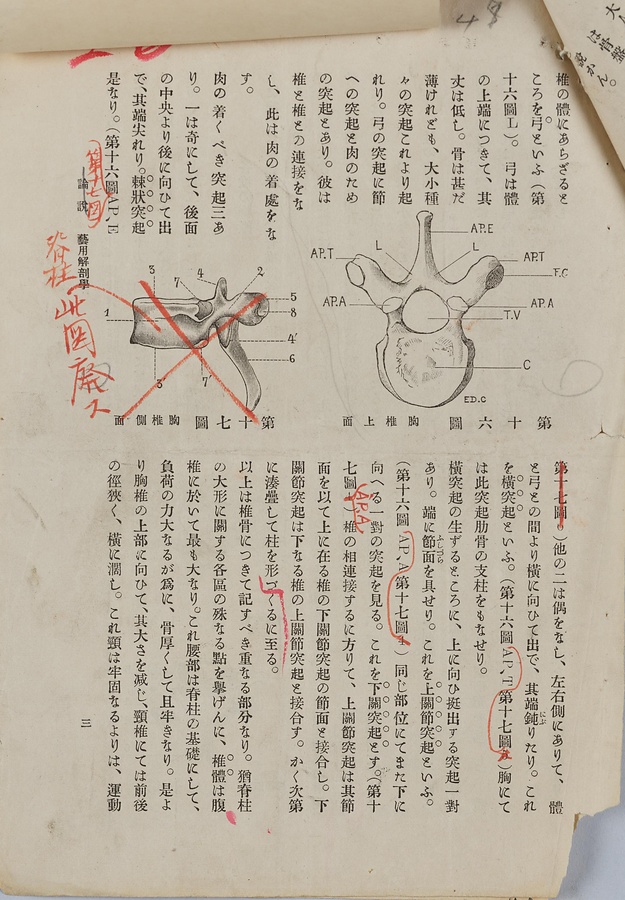 椎の體にあらざると
ころを弓といふ（第
十六圖L）。弓は體
の上端につきて、其
丈は低し。骨は甚だ
薄けれども、大小種
々の突起これより起
れり。弓の突起に節
への突起と肉のため
の突起とあり。彼は
椎と椎との連接をな
し、此は肉の着處をな
す。
肉の着くべき突起三あ
り。一は奇にして、後面
の中央より後に向ひて出
で、其端尖れり。棘狀突起
是なり。（第十六圖AP.E
第十七圖
論說
藝用解剖學
脊柱
此圖廢ス
AP.E
L
L
AP.T
AP.T
F.C
AP.A
AP.A
T.V
C
ED.C
第十六圖
胸椎上面
3
7
4
2
1
5
8
4'
6
3'
7'
第十七圖
胸椎側面
第十七圖）他の二は偶をなし、左右側にありて、體
と弓との間より橫に向ひて出で、其端鈍りたり。これ
を橫突起といふ。（第十六圖AP.T第十七圖）胸にて
は此突起肋骨の支柱をもなせり。
橫突起の生ずるところに、上に向ひ挺出する突起一對
あり。端に節面を具せり。これを上關節突起といふ。
（第十六圖AP.A第十七圖4）同じ部位にてまた下に
向へる一對の突起を見る。これを下關突起とす。（第十
七圖AP.A）椎の相連接するに方りて、上關節突起は其節
面を以て上に在る椎の下關節突起の節面と接合し。下
關節突起は下なる椎の上關節突起と接合す。かく次第
に湊疊して柱を形づくるに至る。
以上は椎骨につきて記すべき重なる部分なり。猶脊柱
の大形に關する各區の殊なる點を擧げんに、椎體は腹
椎に於いて最も大なり。これ腰部は脊柱の基礎にして、
負荷の力大なるが爲に、骨厚くして且牢きなり。是よ
り胸椎の上部に向ひて、其大さを減じ、頸椎にては前後
の徑狹く、橫に濶し。これ頸は牢固なるよりは、運動
三